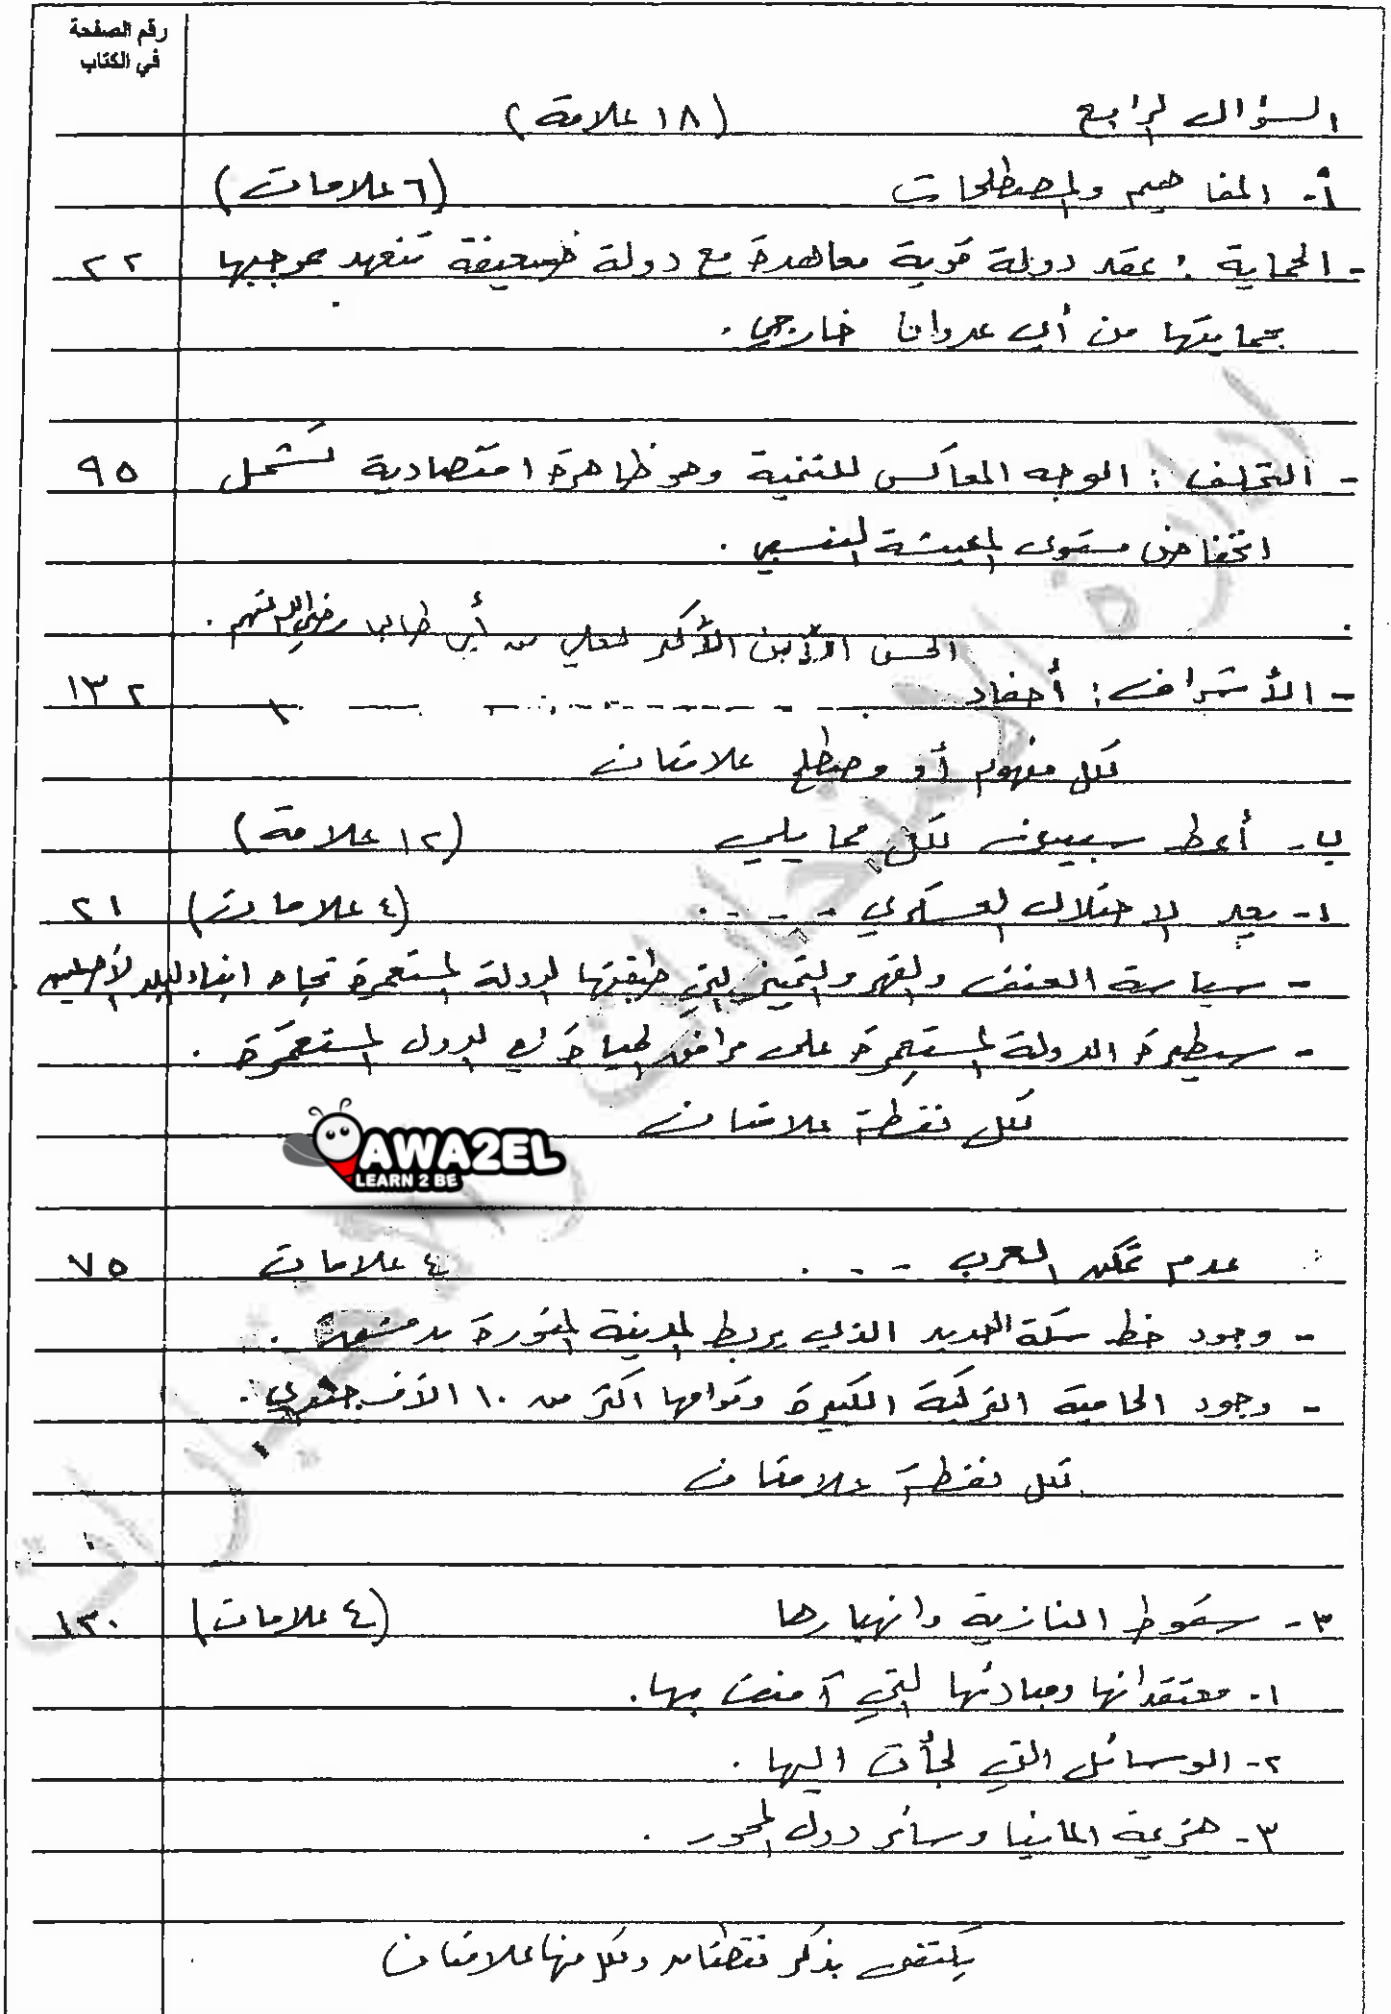 رقم الصفحة
في الكتاب
السؤال الرابع (١٨ علامة)
أ- المفاهيم والمصطلحات (٦ علامات)
- الحماية : عقد دولة قوية معاهدة مع دولة ضعيفة تتعهد بموجبها ٢٢
بحمايتها من أي عدوان خارجي.
- التخلف : الوجه المعاكس للتنمية وهو ظاهرة اقتصادية تشمل ٩٥
انخفاض مستوى المعيشة النسبي .
الحسن الابن الأكبر لعلي بن أبي طالب رضي الله عنهم .
- الأشراف : أحفاد ١٣٢
لكل مفهوم أو مصطلح علامتان
ب- أعط سببين لكل مما يلي (١٢ علامة)
١- يعد الاحتلال العسكري - - - . (٤ علامات) ٢١
- سياسة العنف والقهر والتمييز التي طبقتها الدولة المستعمرة تجاه ابناء البلد الأصليين .
- سيطرة الدولة المستعمِرة على مرافق الحياة في الدول المستعمَرة .
لكل نقطة علامتان
AWA2EL
LEARN 2 BE
عدم تمكن العرب - - . ٤ علامات ٧٥
- وجود خط سكة الحديد الذي يربط المدينة المنورة بدمشق .
- وجود الحامية التركية الكبيرة وقوامها اكثر من ١٠ الآف جندي .
لكل نقطة علامتان
٣- سقوط النازية وانهيارها (٤ علامات) ١٣٠
١- معتقداتها ومبادئها التي آمنت بها.
٢- الوسائل التي لجأت اليها .
٣- هزيمة المانيا وسائر دول المحور .
يكتفى بذكر نقطتان ولكل منها علامتان
إدارة الامتحانات والاختبارات